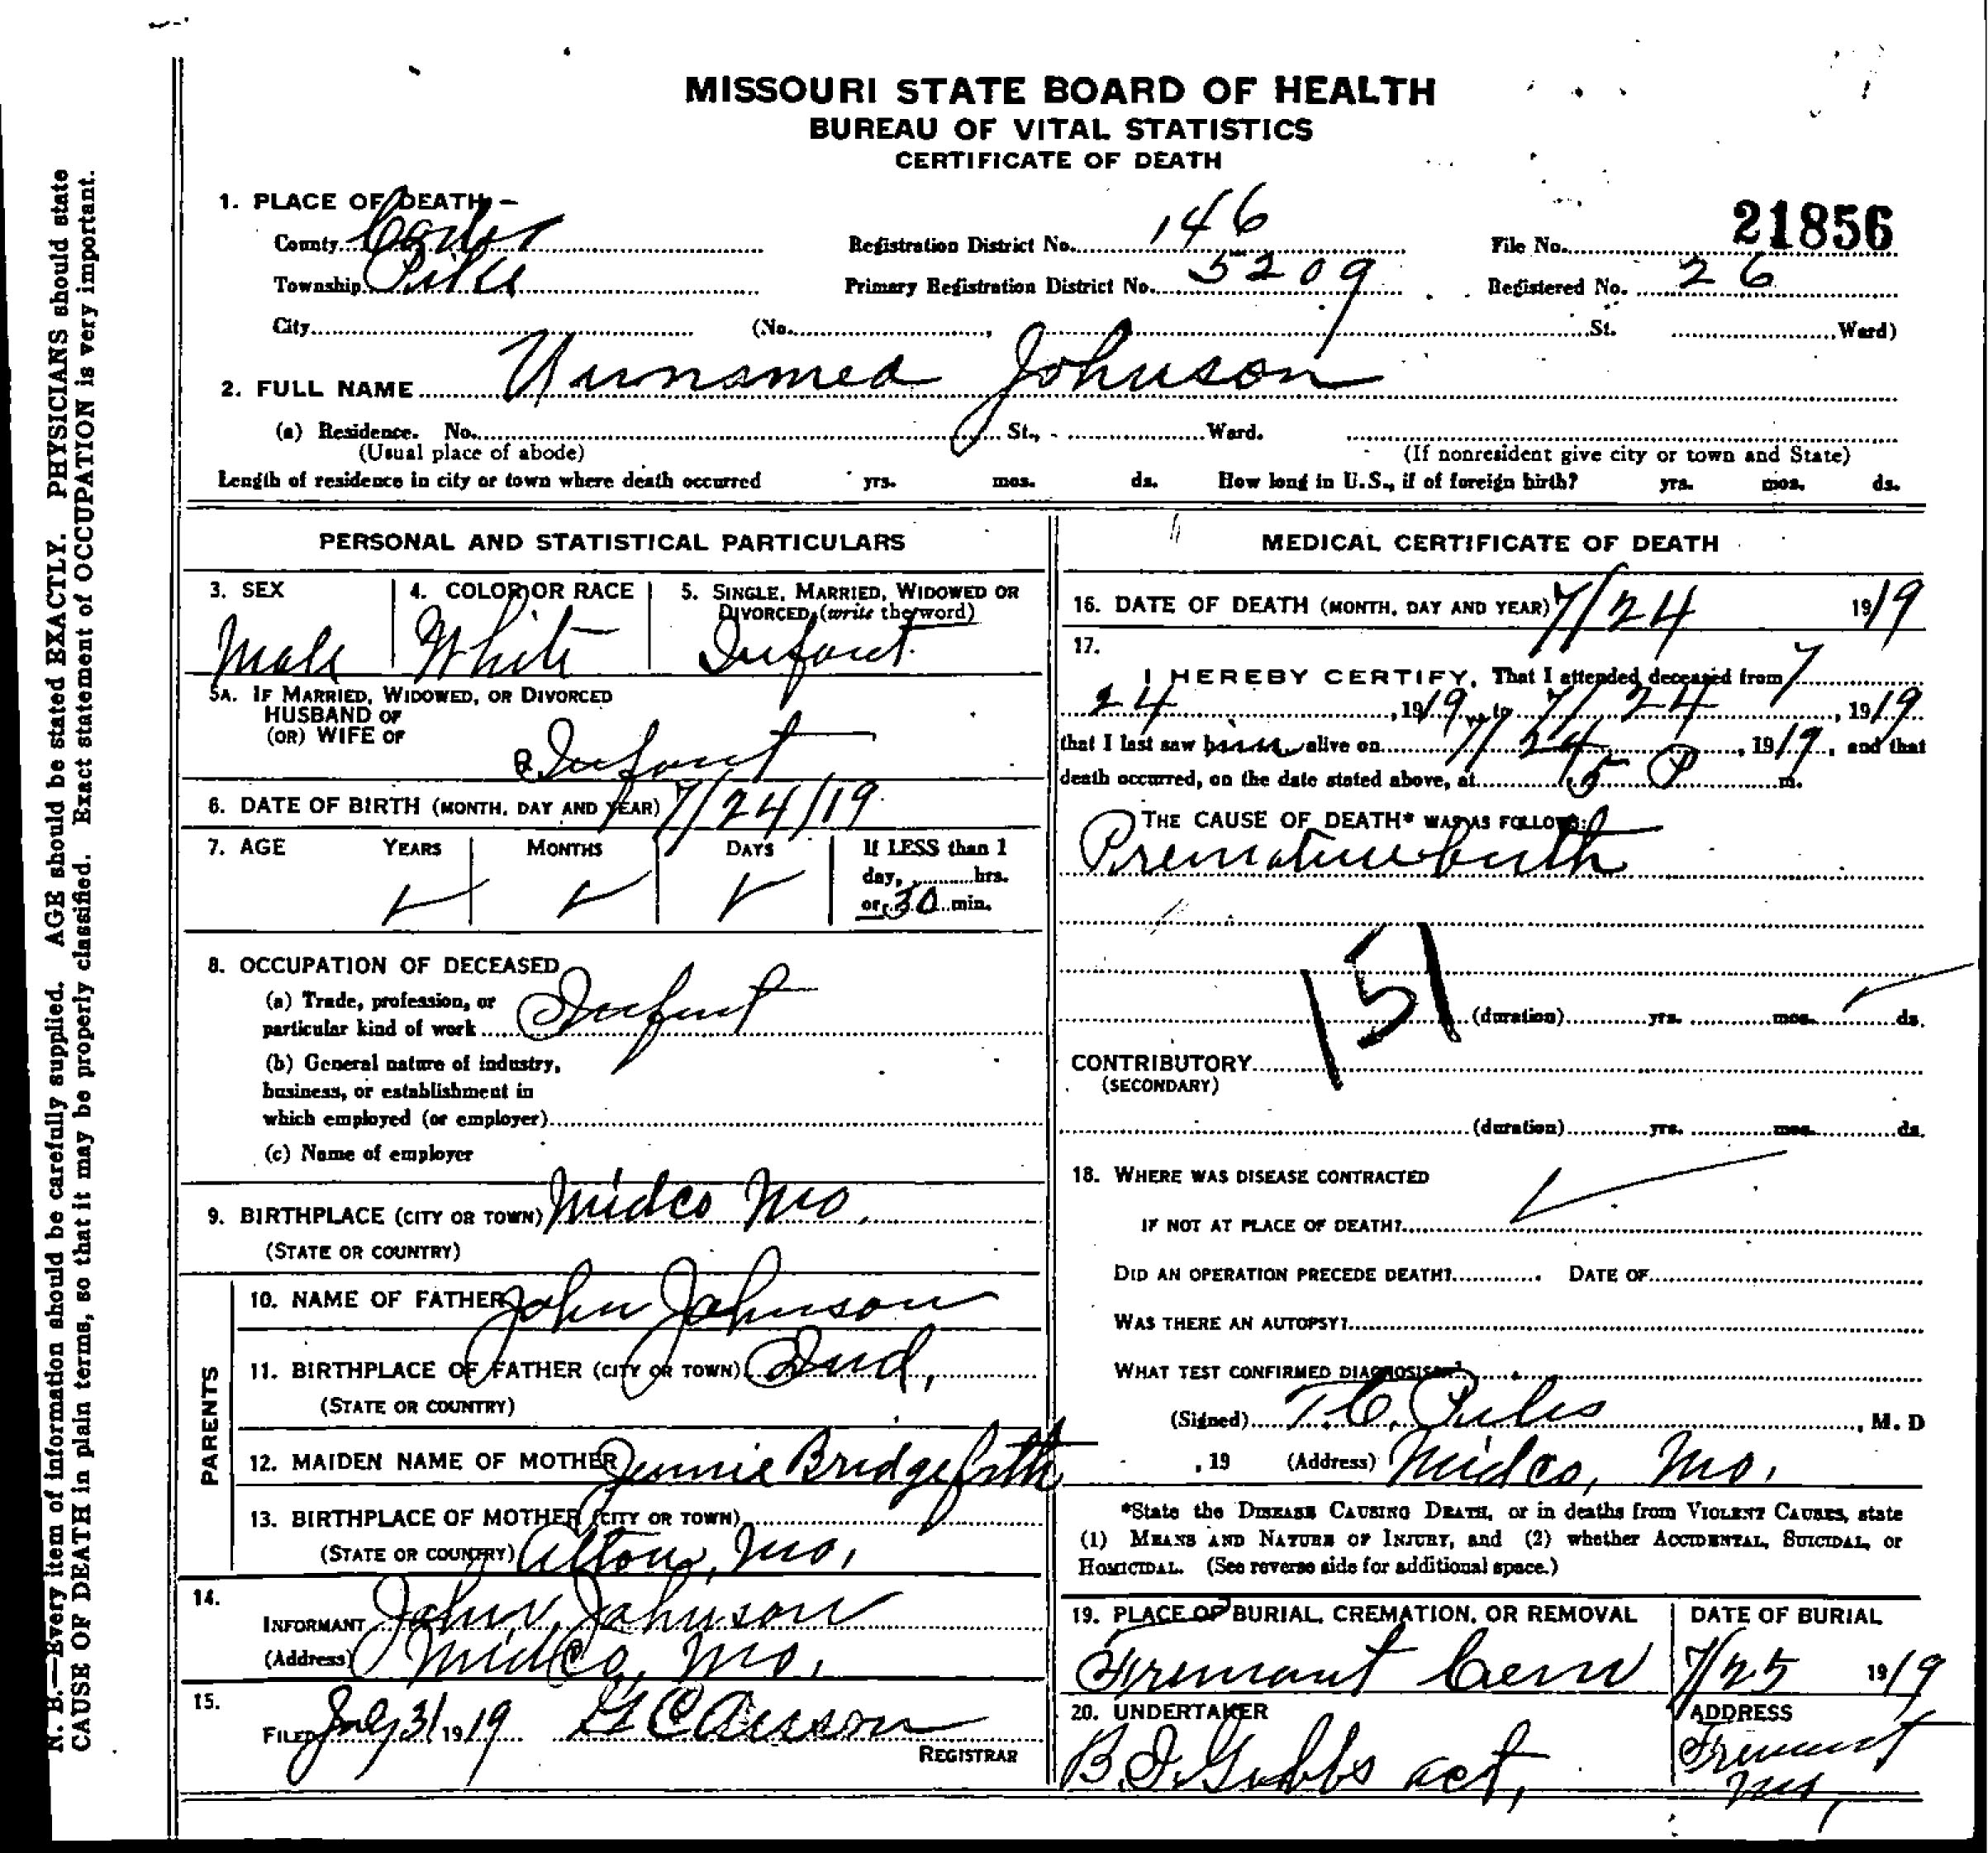 MISSOURI STATE BOARD OF HEALTH
BUREAU OF VITAL STATISTICS
CERTIFICATE OF DEATH
21856
1. PLACE OF DEATH
County Carter Registration District No. 146 File No.
Township Pike Primary Registration District No. 5209 Registered No. 26
City (No. , St. Ward)
2. FULL NAME Unnamed Johnson
(a) Residence. No. St., Ward.
(Usual place of abode) (If nonresident give city or town and State)
Length of residence in city or town where death occurred yrs. mos. ds. How long in U.S., if of foreign birth? yrs. mos. ds.
PERSONAL AND STATISTICAL PARTICULARS
3. SEX 4. COLOR OR RACE 5. SINGLE, MARRIED, WIDOWED OR
DIVORCED (write the word)
Male White Infant
5A. IF MARRIED, WIDOWED, OR DIVORCED
HUSBAND OF
(OR) WIFE OF
Infant
6. DATE OF BIRTH (MONTH, DAY AND YEAR) 7/24/19
7. AGE YEARS MONTHS DAYS If LESS than 1
day, hrs.
or 30 min.
8. OCCUPATION OF DECEASED
(a) Trade, profession, or
particular kind of work Infant
(b) General nature of industry,
business, or establishment in
which employed (or employer)
(c) Name of employer
9. BIRTHPLACE (CITY OR TOWN) Midco Mo.
(STATE OR COUNTRY)
PARENTS
10. NAME OF FATHER John Johnson
11. BIRTHPLACE OF FATHER (CITY OR TOWN) Ind,
(STATE OR COUNTRY)
12. MAIDEN NAME OF MOTHER Jennie Bridgeforth
13. BIRTHPLACE OF MOTHER (CITY OR TOWN)
(STATE OR COUNTRY) Alton, Mo,
14.
INFORMANT John Johnson
(Address) Midco, Mo,
15.
FILED July 31 1919
REGISTRAR
MEDICAL CERTIFICATE OF DEATH
16. DATE OF DEATH (MONTH, DAY AND YEAR) 7/24 1919
17.
I HEREBY CERTIFY, That I attended deceased from 7
24, 1919, to 7/24, 1919
that I last saw him alive on 7/24, 1919, and that
death occurred, on the date stated above, at P m.
THE CAUSE OF DEATH* WAS AS FOLLOWS:
Premature birth
151
(duration) yrs. mos. ds.
CONTRIBUTORY
(SECONDARY)
(duration) yrs. mos. ds.
18. WHERE WAS DISEASE CONTRACTED
IF NOT AT PLACE OF DEATH?
DID AN OPERATION PRECEDE DEATH? DATE OF
WAS THERE AN AUTOPSY?
WHAT TEST CONFIRMED DIAGNOSIS?
(Signed) T.C. , M. D
, 19 (Address) Midco, Mo,
*State the DISEASE CAUSING DEATH, or in deaths from VIOLENT CAUSES, state
(1) MEANS AND NATURE OF INJURY, and (2) whether ACCIDENTAL, SUICIDAL, or
HOMICIDAL. (See reverse side for additional space.)
19. PLACE OF BURIAL, CREMATION, OR REMOVAL DATE OF BURIAL
Fremont Cem 7/25 1919
20. UNDERTAKER ADDRESS
act, Fremont
Mo,
N. B.—Every item of information should be carefully supplied. AGE should be stated EXACTLY. PHYSICIANS should state
CAUSE OF DEATH in plain terms, so that it may be properly classified. Exact statement of OCCUPATION is very important.